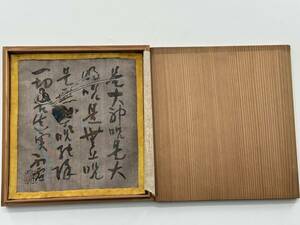 是大神呪是大
明呪是無上呪
是無等等呪能除
一切苦真実不虚